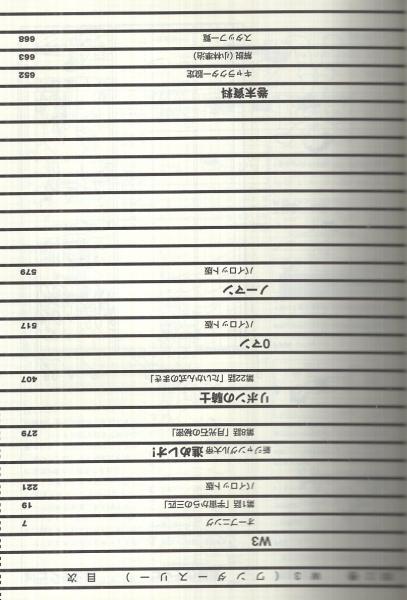 W3（ワンダースリー） 目次
W3
オープニング 7
第1話「宇宙からの三匹」 19
パイロット版 221
新ジャングル大帝 進めレオ!
第8話「月光石の秘密」 279
リボンの騎士
第22話「たいかん式のまき」 407
0マン
パイロット版 517
ノーマン
パイロット版 579
巻末資料
キャラクター設定 652
解説（小林準治） 663
スタッフ一覧 668